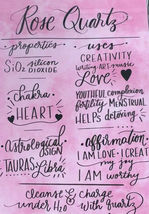 Rose Quartz
properties
SiO2 silicon
DIOXIDE
chakra
HEART
Astrological
SIGN
TAURAS & Libra
uses
CREATIVITY
writing ART music
Love
YOUTHFUL complexion
fertility MENSTRUAL
HELPS detoxing
affirmation
I AM LOVE · I CREAT
my joy
I AM worthy
cleanse & charge
under H2O with quartz